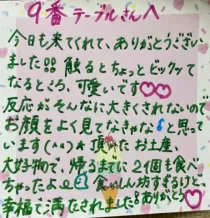 9番テーブルさんへ
今日も来てくれて、ありがとうござい
ました!!触るとちょっとビックッて
なるところ、可愛いです♡♡
反応がそんなに大きくされないので
お顔をよく見てなきゃな♪と思って
います(^^)☆頂いたお土産、
大好物で、帰るまでに2個も食べ
ちゃったよ 食いしん坊すぎるけど
幸福で満たされました!ありがとう♡